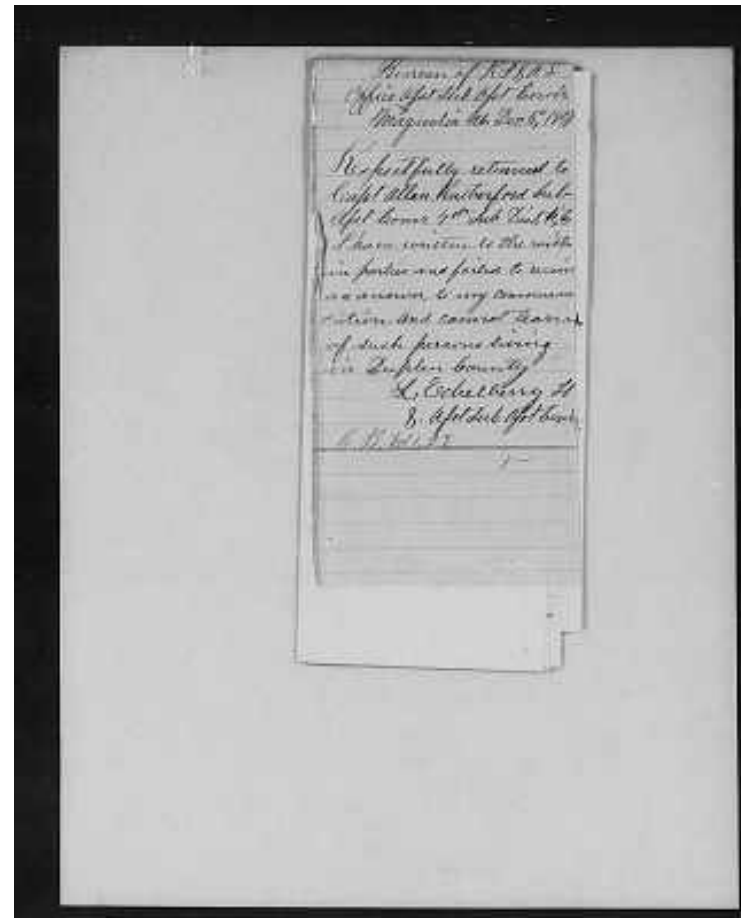 Bureau of R F & A L
Office Asst Sub Asst Comr
Magnolia NC Dec 5, 186
Respectfully returned to
Capt Allan Rutherford Sub-
Asst Comr 4th Sub Dist N,C
I have written to the with
in parties and failed to receive
an answer to my communi
cation and cannot learn
of such persons living
in Duplin County
L, Echelberry
Asst Sub Asst Comr